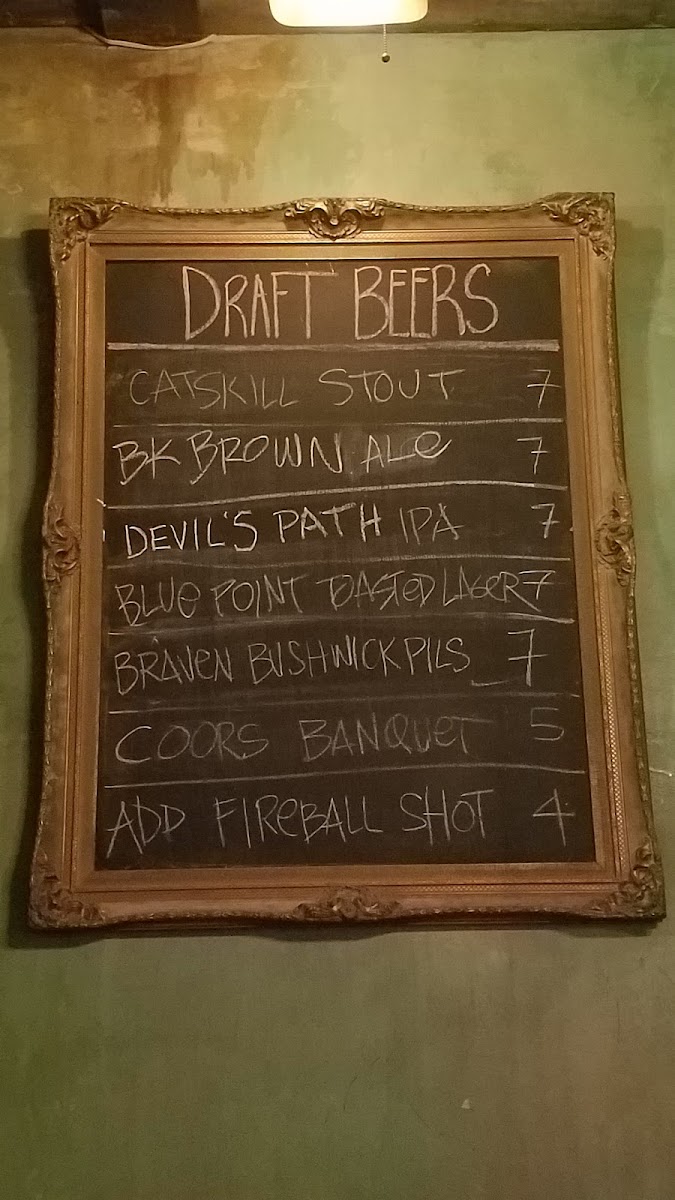 DRAFT BEERS
CATSKILL STOUT 7
BK BROWN ALe 7
DEVIL'S PATH IPA 7
BLUe POINT TOASTeD LAGeR 7
BRAVeN BUSHWICK PILS 7
COORS BANQUeT 5
ADD FIReBALL SHOT 4